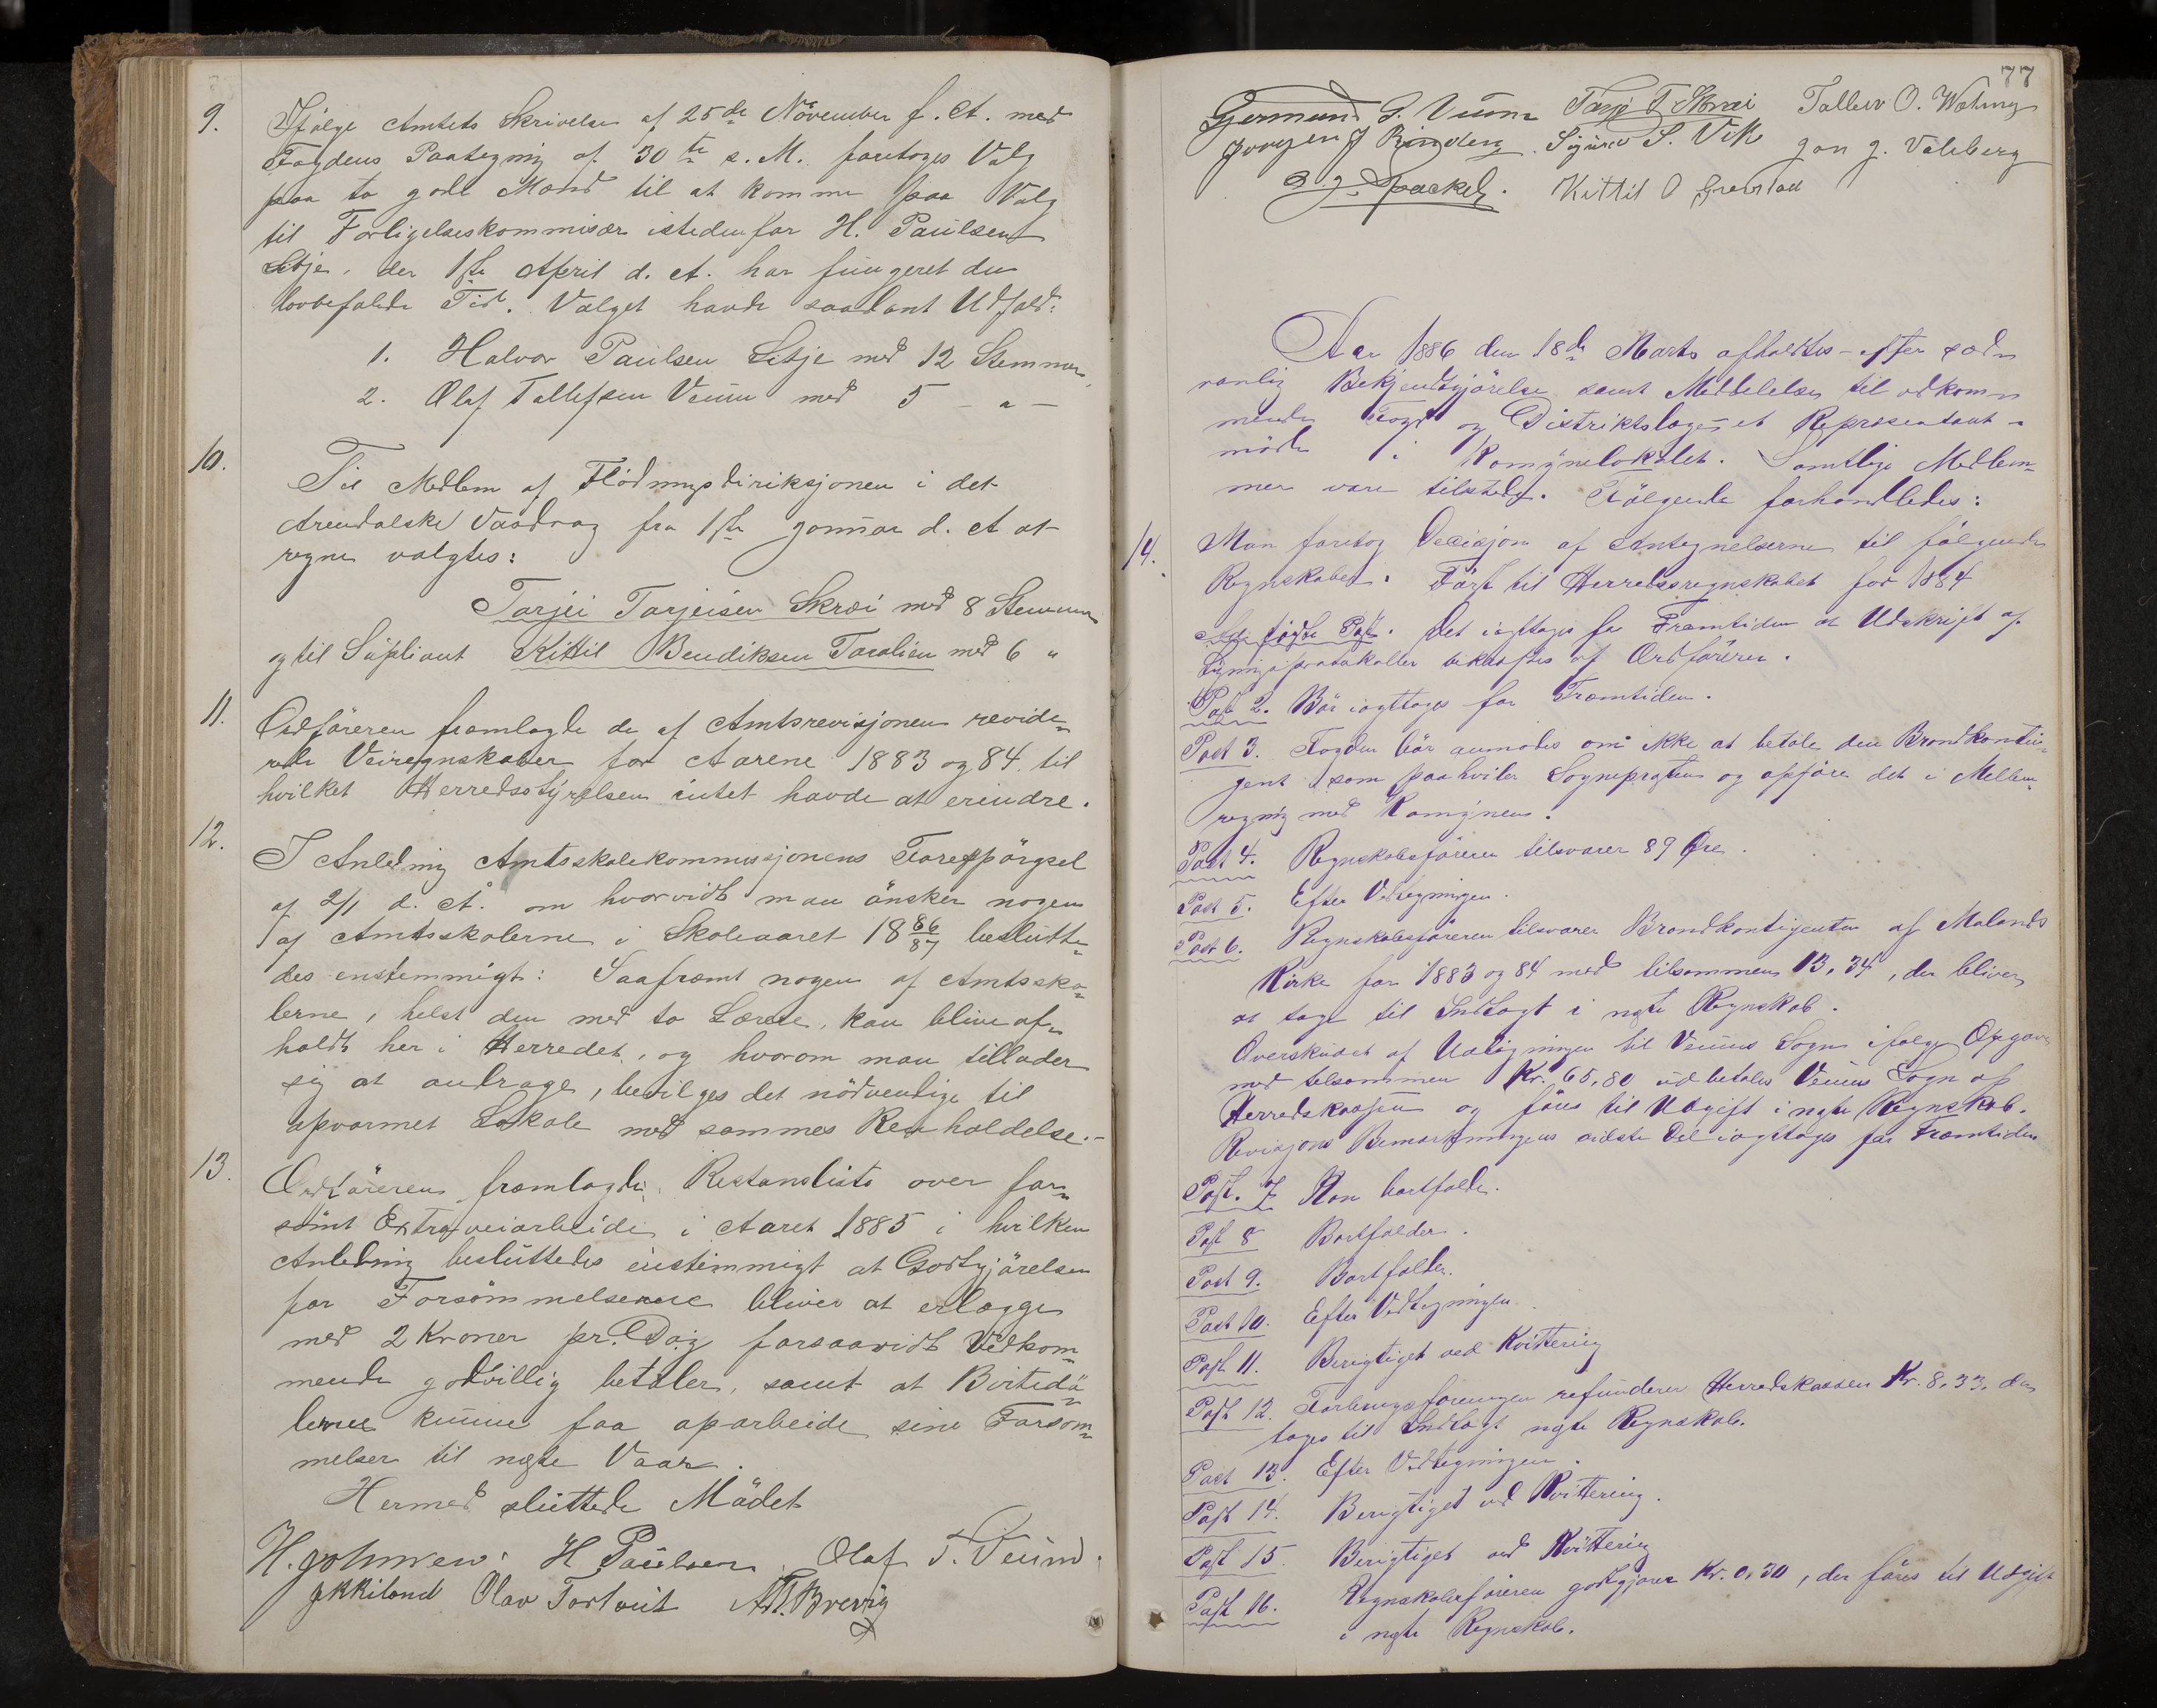 9. Ifølge Amtets Skrivelse af 25de November f. A. med
Fogdens Paategning af 30te s. M. foretoges Valg
paa to gode Mænd til at komme paa Valg
til Forligelseskommisær istedenfor H. Paulsen
Litje, der 1ste April d. A. har fungeret den
lovbefalede Tid. Valget havde saadant Udfald:
1. Halvor Paulsen Litje med 12 Stemmer,
2. Olaf Tallefsen Veum med 5 – " –
10. Til Medlem af Flødningsdireksjonen i det
Arendalske Vasdrag fra 1ste Januar d. A at
regne valgtes:
Tarjei Tarjeisen Skrei med 8 Stemmer
og til Supliant Kittil Bendiksen Taralien med 6 "
11. Ordføreren fremlagde de af Amtsrevisjonen revide-
rede Veiregnskaber for Aarene 1883 og 84. til
hvilket Herredsstyrelsen intet havde at erindre.
12. I Anledning Amtsskolekommissjonens Forespørgsel
af 2/1 d. A. om hvorvidt man ønsker nogen
af Amtsskolerne i Skoleaaret 1886/87 beslutte-
des enstemmigt: Saafremt nogen af Amtssko-
lerne, helst den med to Lærere, kan blive af-
holdt her i Herredet, og hvorom man tillader
sig at andrage, bevilges det nødvendige til
opvarmet Lokale med sammes Renholdelse.–
13. Ordføreren fremlagde Restanseliste over for-
sømt Extraveiarbeide i Aaret 1885 i hvilken
Anledning besluttedes enstemmigt at Godtgjørelsen
for Forsømmelserne bliver at erlægge
med 2 Kroner pr. Dag forsaavidt Vedkom-
mende godvillig betaler, samt at Birtedø-
lerne kunne faa oparbeide sine Forsøm-
melser til næste Vaar.
Hermed sluttede Mødet
H. Johnsen. H Paulsen. Olaf T. Veum.
Olav Tortveit
77
Germund G. Veum Tarje T Skrei Tallev O.
Jørgen J Rinden. Sigurd S. Vik Jon J.
Kittil O
Aar 1886 den 18de Marts afholdtes – efter sæd-
vanlig Bekjendtgjørelse samt Meddelelse til vedkom-
mende Fogd og Distriktslæge – et Representant-
møde i Komunelokalet. Samtlige Medlem-
mer vare tilstede. Følgende forhandledes:
14. Man foretog Decisjon af Antegnelserne til følgende
Regnskaber: Først til Herredsregnskabet for 1884
første Post. Det iagttages for Fremtiden at Udskrift af
Ligningsprotokollen bekræftes af Ordføreren.
Post 2. Bør iagttages for Fremtiden.
Post 3. Fogden bør anmodes om ikke at betale den Brandkontin-
gent som paahviler Sognepræsten og opføre det i Mellem-
regning med Komunen.
Post 4. Regnskabsføreren tilsvarer 89 Øre.
Post 5. Efter Vedtegningen.
Post 6. Regnskabsføreren tilsvarer Brandkontigenten af Molands
Kirke for 1883 og 84 med tilsammen 13,34, der bliver
at tage til Indtægt i næste Regnskab.
Overskudet af Udligningen til Veums Sogn ifølge Opgave
med tilsammen Kr. 65,80 udbetales Veums Sogn af
Herredskassen og føres til Udgift i næste Regnskab.
Revisjons Bemærkningens sidste Del iagttages for Fremtiden
Post. 7 Kan bortfalde.
Post 8 Bortfalder.
Post 9. Bortfalder.
Post 10. Efter Vedtegningen
Post 11. Berigtiget ved Kvittering
Post 12. Forligsforeningen refunderer Herredskassen Kr. 8,33, der
tages til Indtægt næste Regnskab.
Post 13. Efter Vedtegningen.
Post 14. Berigtiget ved Kvittering.
Post 15. Berigtiget ved Kvittering
Post 16. Regnskabsføreren godtgjøres Kr. 0,30, der føres til Udgift
i næste Regnskab.